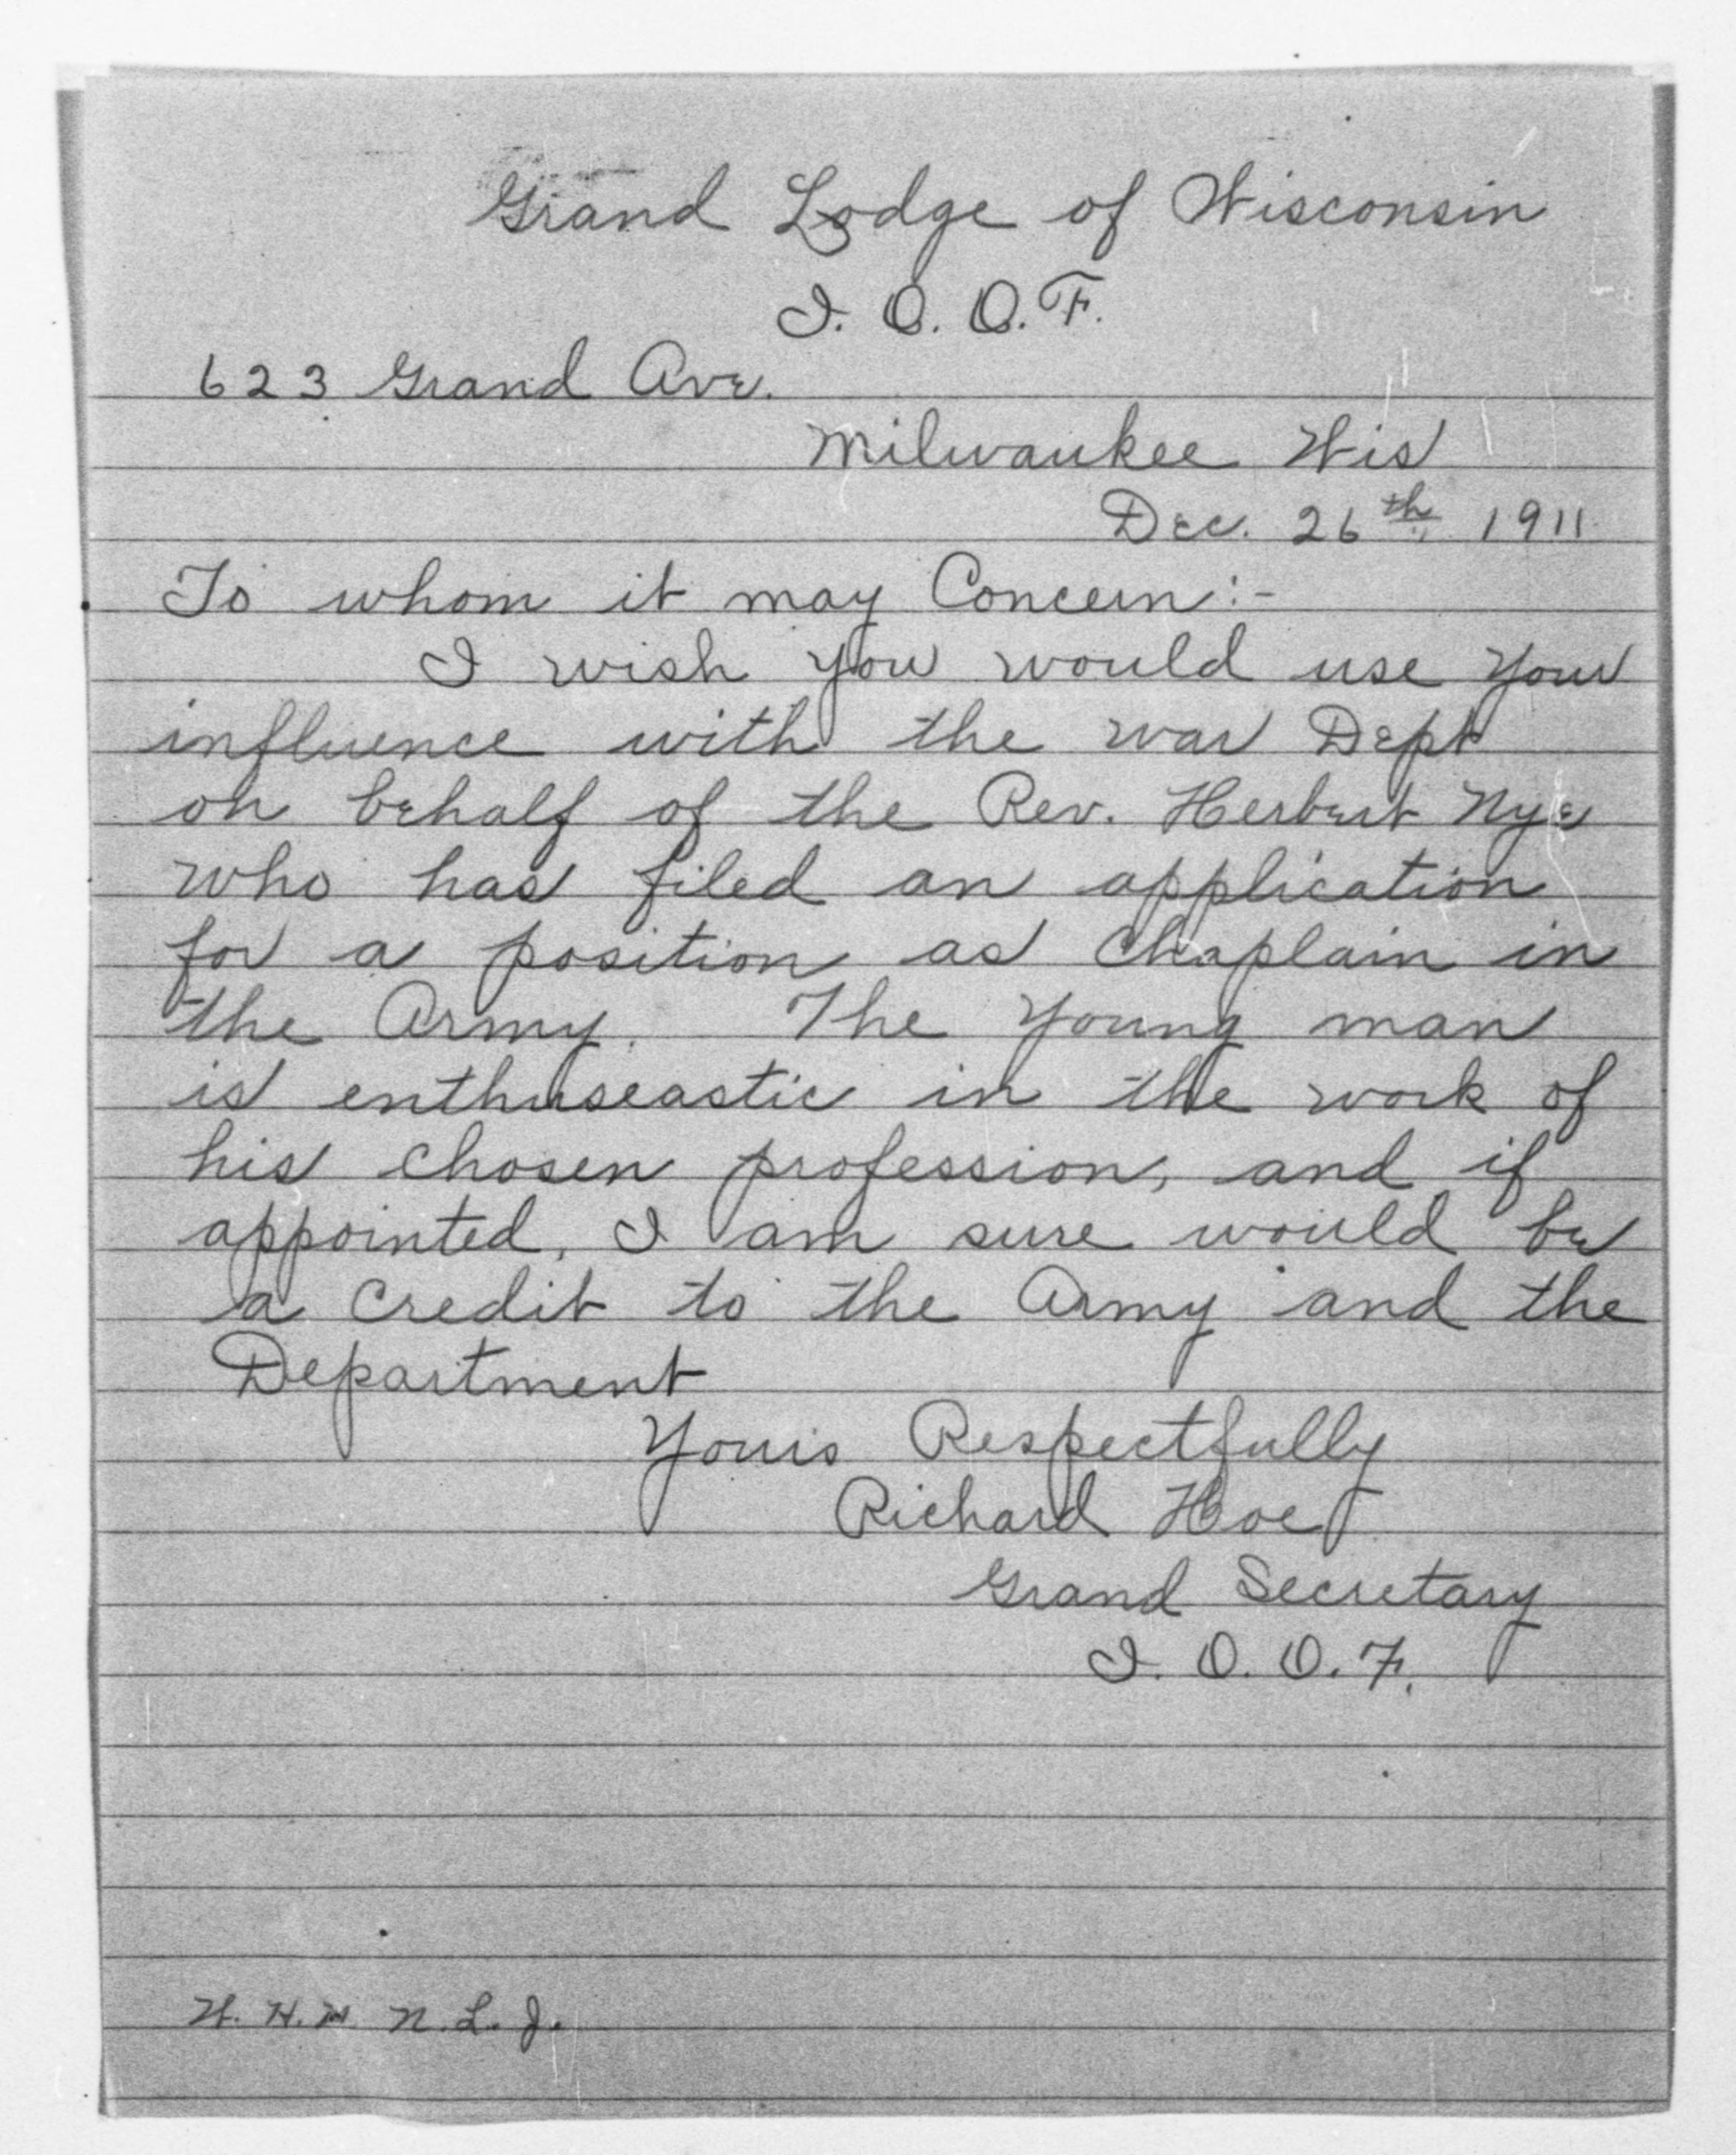 Grand Lodge of Wisconsin
I. O. O. F.
623 Grand Ave.
Milwaukee Wis
Dec. 26th 1911
To whom it may Concern:-
I wish you would use your
influence with the war Dept
on behalf of the Rev. Herbert Nye
who has filed an application
for a position as Chaplain in
the Army. The young man
is enthuseastic in the work of
his chosen profession, and if
appointed, I am sure would be
a credit to the Army and the
Department
Yours Respectfully
Richard Hoe
Grand Secretary
I. O. O. F.
N. L. J.